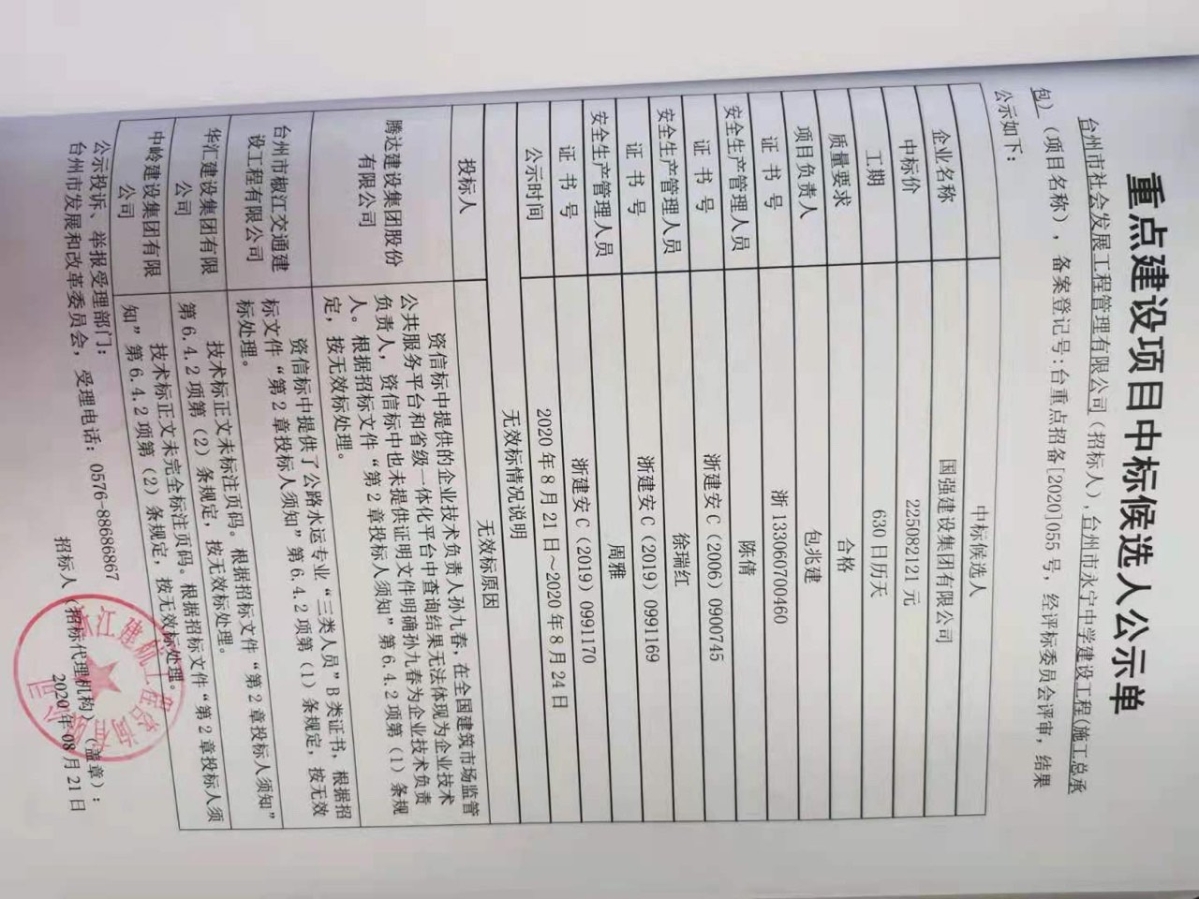 重点建设项目中标候选人公示单
台州市社会发展工程管理有限公司（招标人），台州市永宁中学建设工程(施工总承
包)（项目名称），备案登记号：台重点招备[2020]055号，经评标委员会评审，结果
公示如下：
中标候选人
企业名称 国强建设集团有限公司
中标价 225082121 元
工期 630 日历天
质量要求 合格
项目负责人 包兆建
证 书 号 浙 133060700460
安全生产管理人员 陈倩
证 书 号 浙建安 C（2006）0900745
安全生产管理人员 徐瑞红
证 书 号 浙建安 C（2019）0991169
安全生产管理人员 周雅
证 书 号 浙建安 C（2019）0991170
公示时间 2020 年 8 月 21 日～2020 年 8 月 24 日
无效标情况说明
投标人 无效标原因
腾达建设集团股份
有限公司
资信标中提供的企业技术负责人孙九春，在全国建筑市场监管
公共服务平台和省级一体化平台中查询结果无法体现为企业技术
负责人，资信标中也未提供证明文件明确孙九春为企业技术负责
人。根据招标文件“第 2 章投标人须知”第 6.4.2 项第（1）条规
定，按无效标处理。
台州市椒江交通建
设工程有限公司
资信标中提供了公路水运专业“三类人员”B 类证书，根据招
标文件“第 2 章投标人须知”第 6.4.2 项第（1）条规定，按无效
标处理。
华汇建设集团有限
公司
技术标正文未标注页码。根据招标文件“第 2 章投标人须知”
第 6.4.2 项第（2）条规定，按无效标处理。
中岭建设集团有限
公司
技术标正文未完全标注页码。根据招标文件“第 2 章投标人须
知”第 6.4.2 项第（2）条规定，按无效标处理。
公示投诉、举报受理部门：
台州市发展和改革委员会，受理电话：0576-88686867
招标人（招标代理机构）（盖章）：
2020 年 08 月 21 日